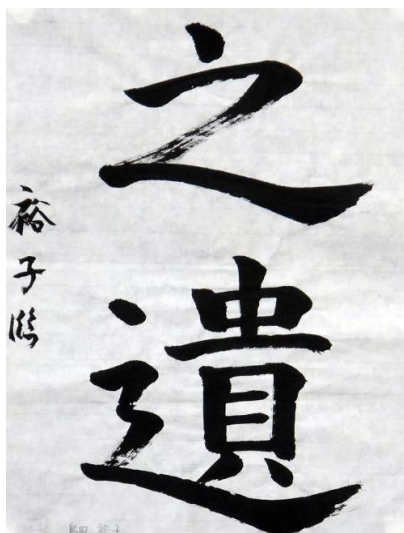 之遺
裕子臨